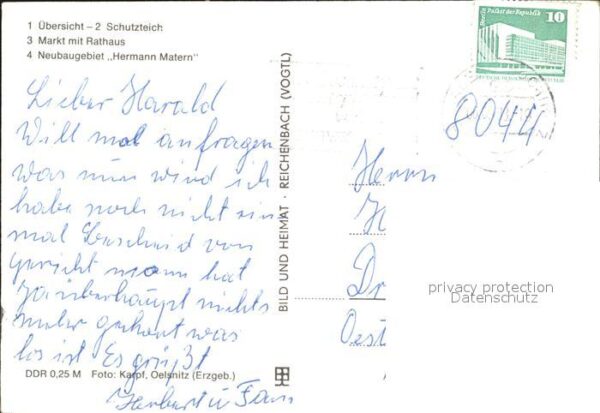 1 Übersicht – 2 Schutzteich
3 Markt mit Rathaus
4 Neubaugebiet „Hermann Matern"
Lieber Harald
Will mal anfragen
was nun wird ich
habe noch nicht ein
mal Bescheid vom
gericht mann hat
ja überhaupt nichts
mehr gehört was
los ist Es grüßt
Herbert u Fam
DDR 0,25 M Foto: Karpf, Oelsnitz (Erzgeb.)
BILD UND HEIMAT · REICHENBACH (VOGTL)
Palast der Republik
10
8044
Herrn
H
Dr
Oest
privacy protection
Datenschutz